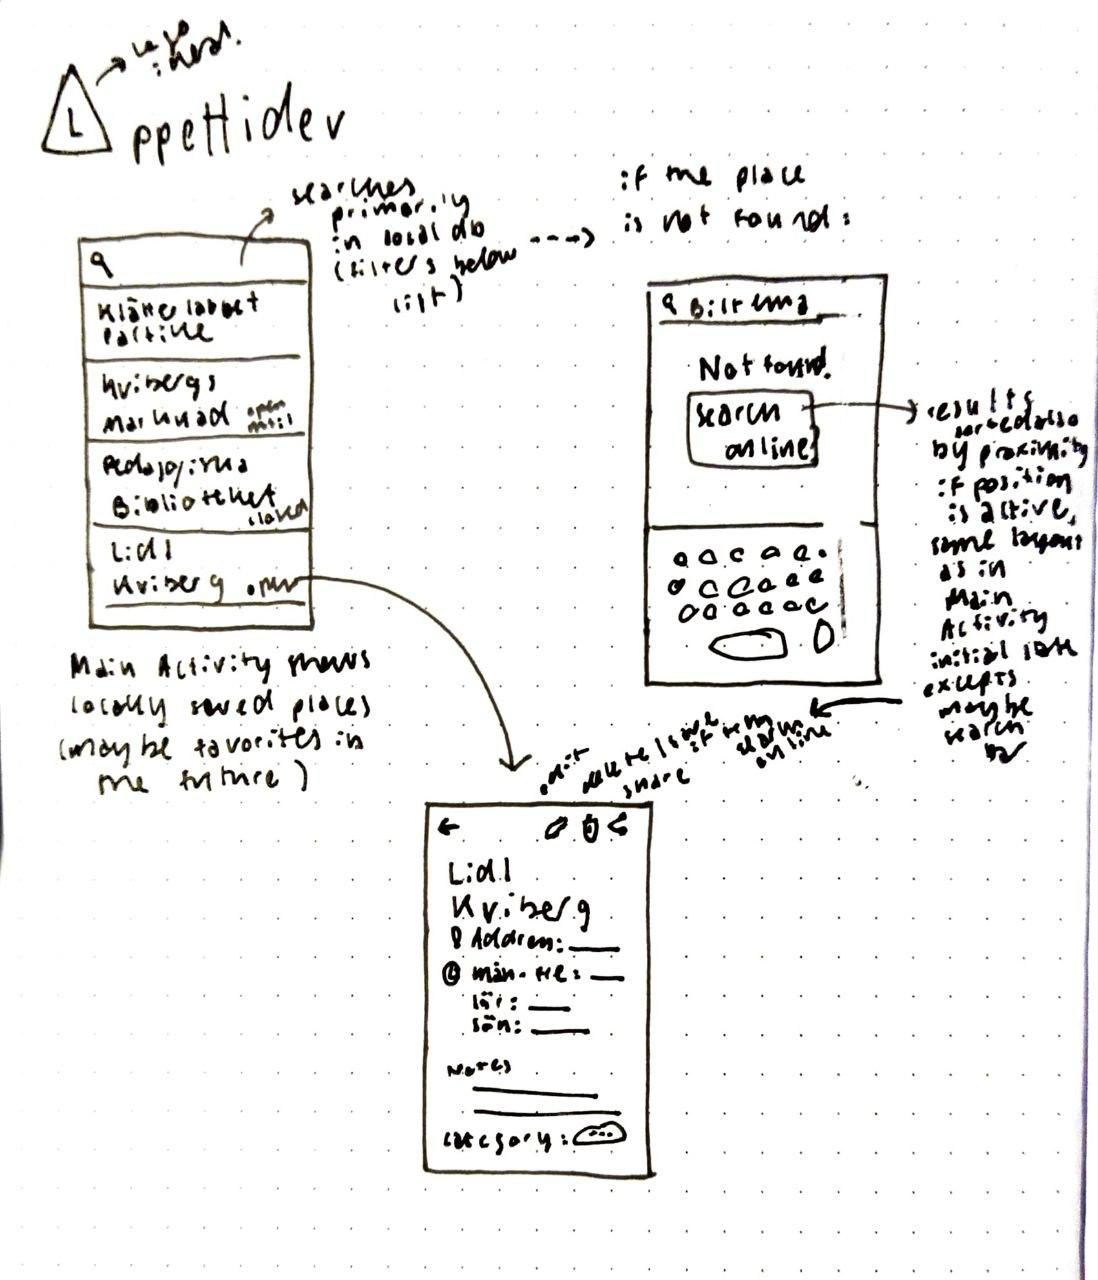 L
ppettider
searches
primarily
in local db
(filters below
list)
if the place
is not found:
Klätterlabbet
Partille
Kvibergs
Marknad open
until
Pedagogiska
Biblioteket
closed
Lidl
Kviberg open
Main Activity shows
locally saved places
(maybe favorites in
the future)
Biltema
Not found.
search
online
results
sorted also
by proximity
if position
is active,
same layout
as in
Main
Activity
initial
excepts
maybe
search
edit
delete / save if from
search
online
share
Lidl
Kviberg
Address:
mån-fre:
lör:
sön:
Notes
category: ...